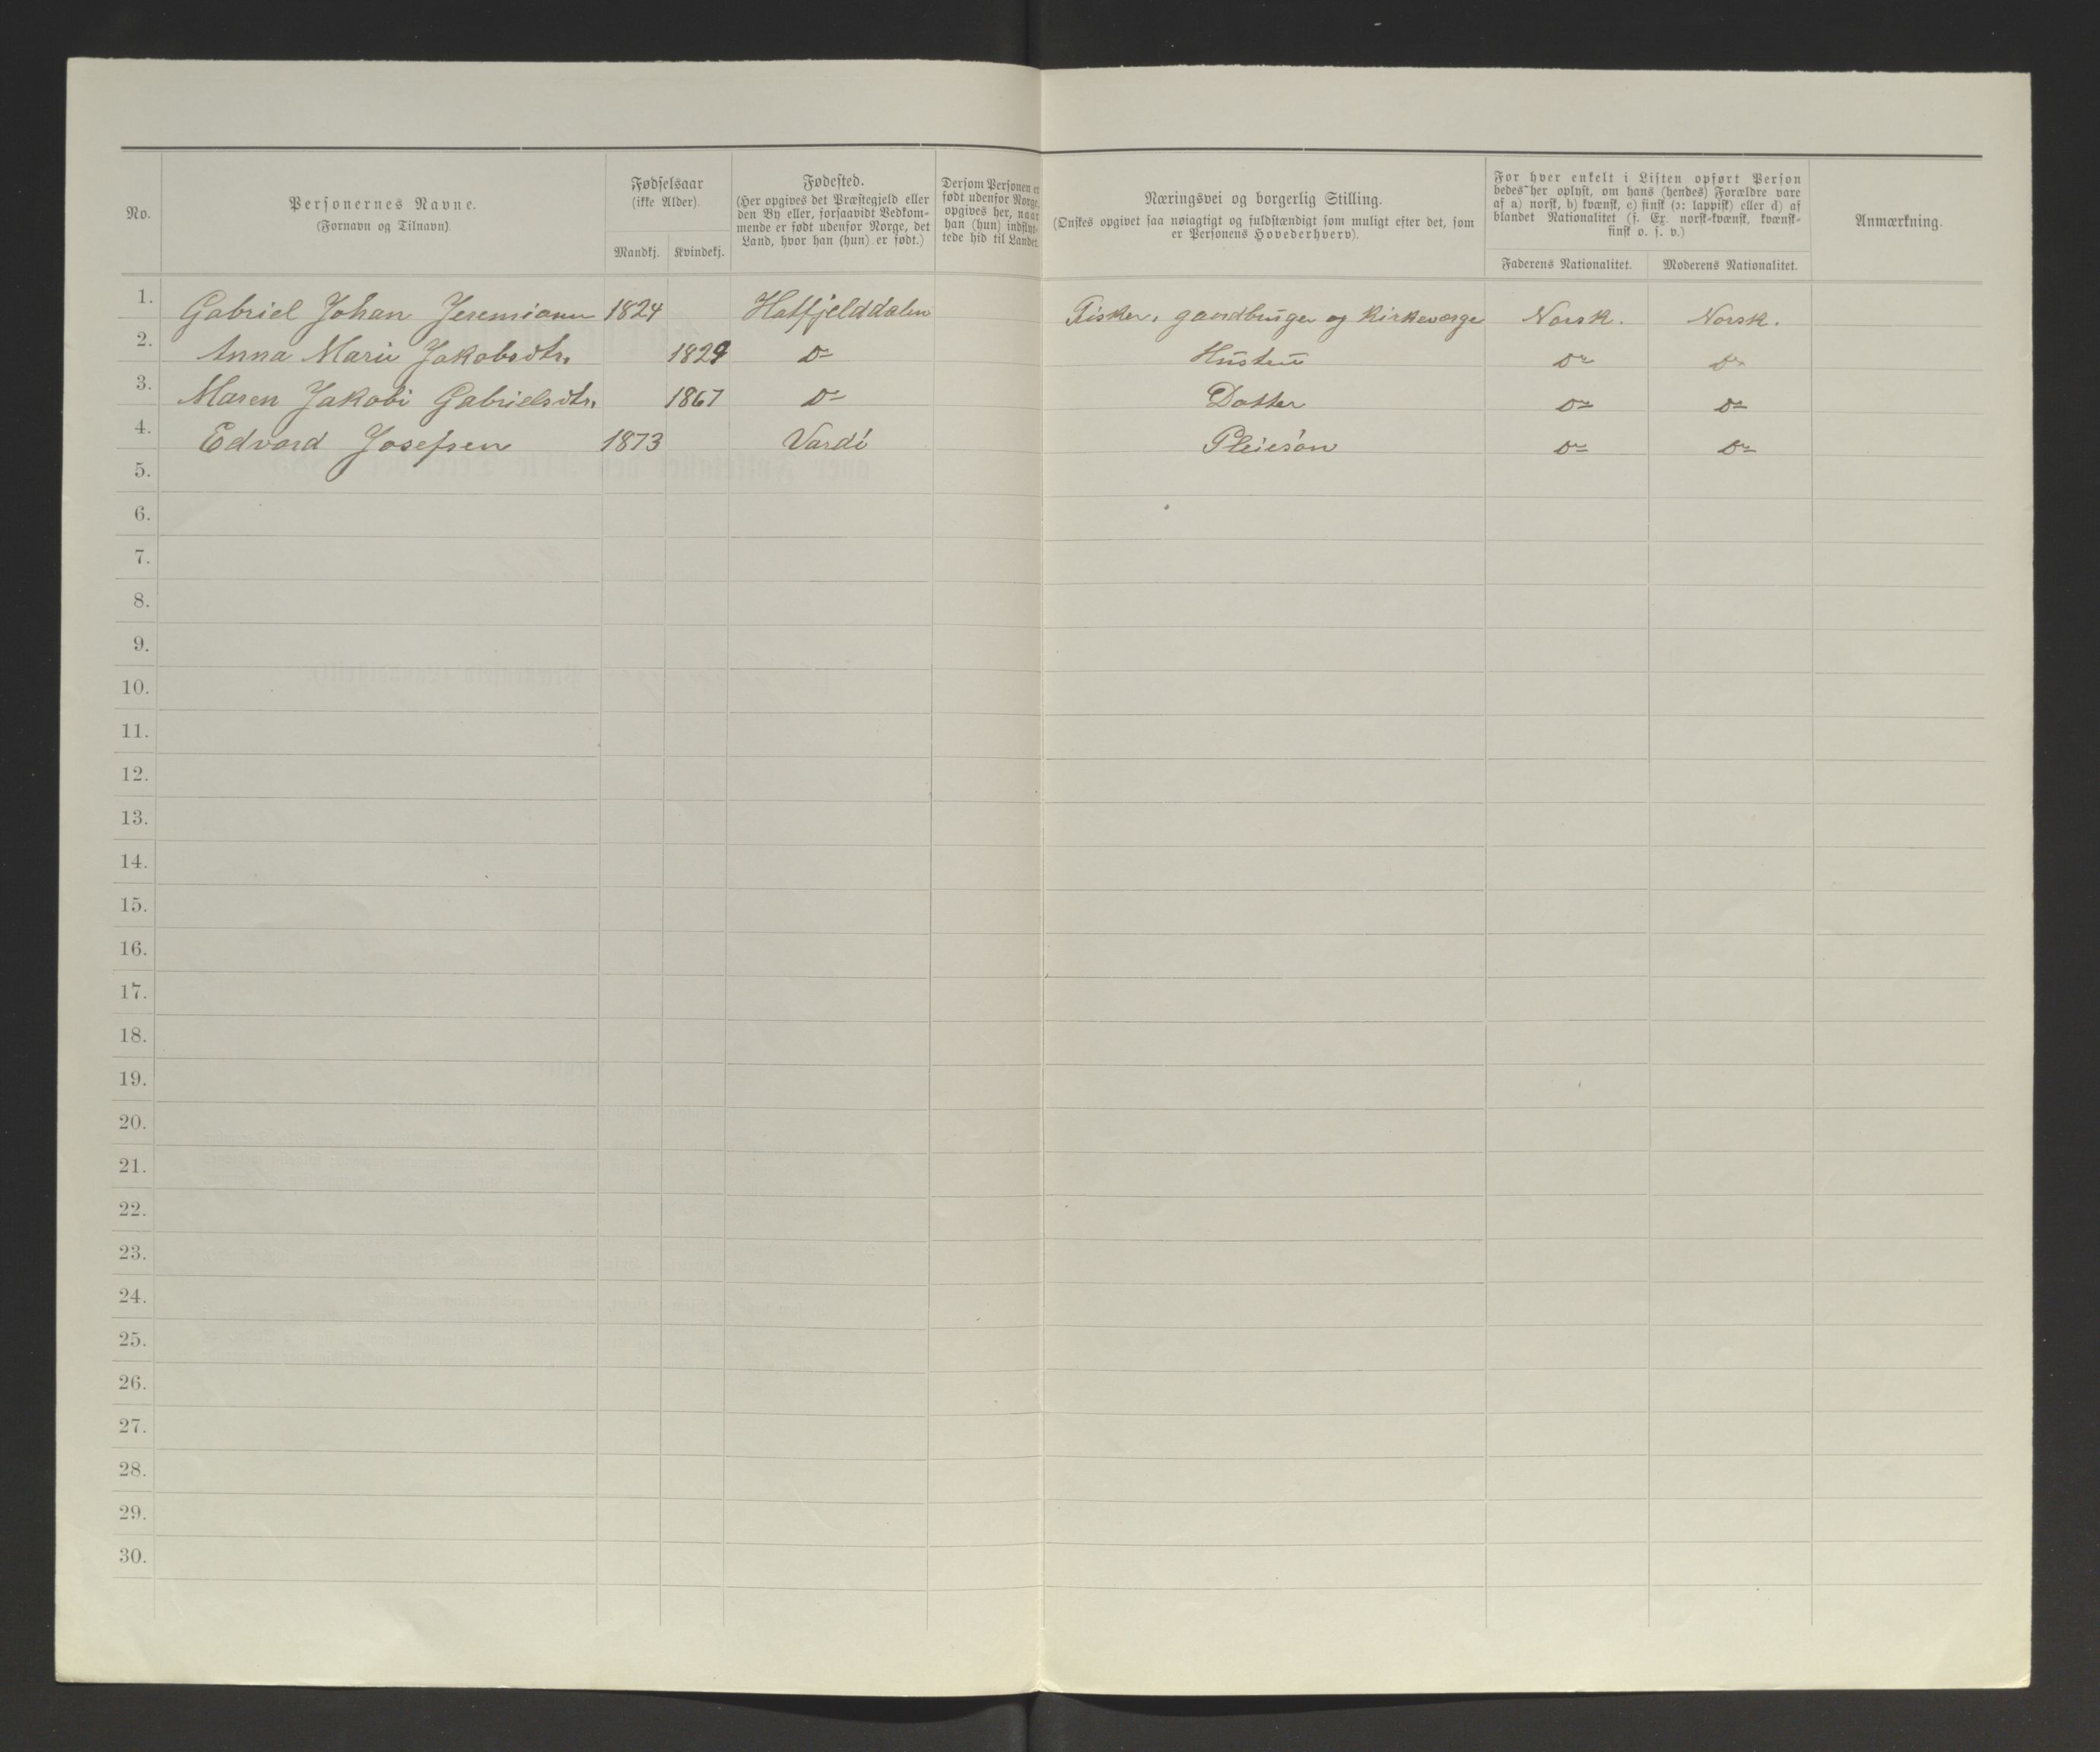 No.
Personernes Navne.
(Fornavn og Tilnavn).
Fødselsaar
(ikke Alder).
Mandkj. Kvindekj.
Fødested.
(Her opgives det Præstegjeld eller
den By eller, forsaavidt Vedkom-
mende er født udenfor Norge, det
Land, hvor han (hun) er født.)
Dersom Personen er
født udenfor Norge,
opgives her, naar
han (hun) indflyt-
tede hid til Landet.
Næringsvei og borgerlig Stilling.
(Ønskes opgivet saa nøiagtigt og fuldstændigt som muligt efter det, som
er Personens Hovederhverv).
For hver enkelt i Listen opført Person
bedes her oplyst, om hans (hendes) Forældre vare
af a) norsk, b) kvænsk, c) finsk (ɔ: lappisk) eller d) af
blandet Nationalitet (f. Ex. norsk-kvænsk, kvænsk-
finsk o. s. v.)
Faderens Nationalitet. Moderens Nationalitet.
Anmærkning.
1. Gabriel Johan Jeremiasen 1824 Hatfjelddalen Fisker, gaardbruger og Kirkeværge Norsk. Norsk.
2. Anna Marie Jakobsdtr. 1829 Do Hustru Do Do
3. Maren Jakobi Gabrielsdtr. 1867 Do Datter Do Do
4. Edvard Josefsen 1873 Vardö Pleiesön Do Do
5.
6.
7.
8.
9.
10.
11.
12.
13.
14.
15.
16.
17.
18.
19.
20.
21.
22.
23.
24.
25.
26.
27.
28.
29.
30.